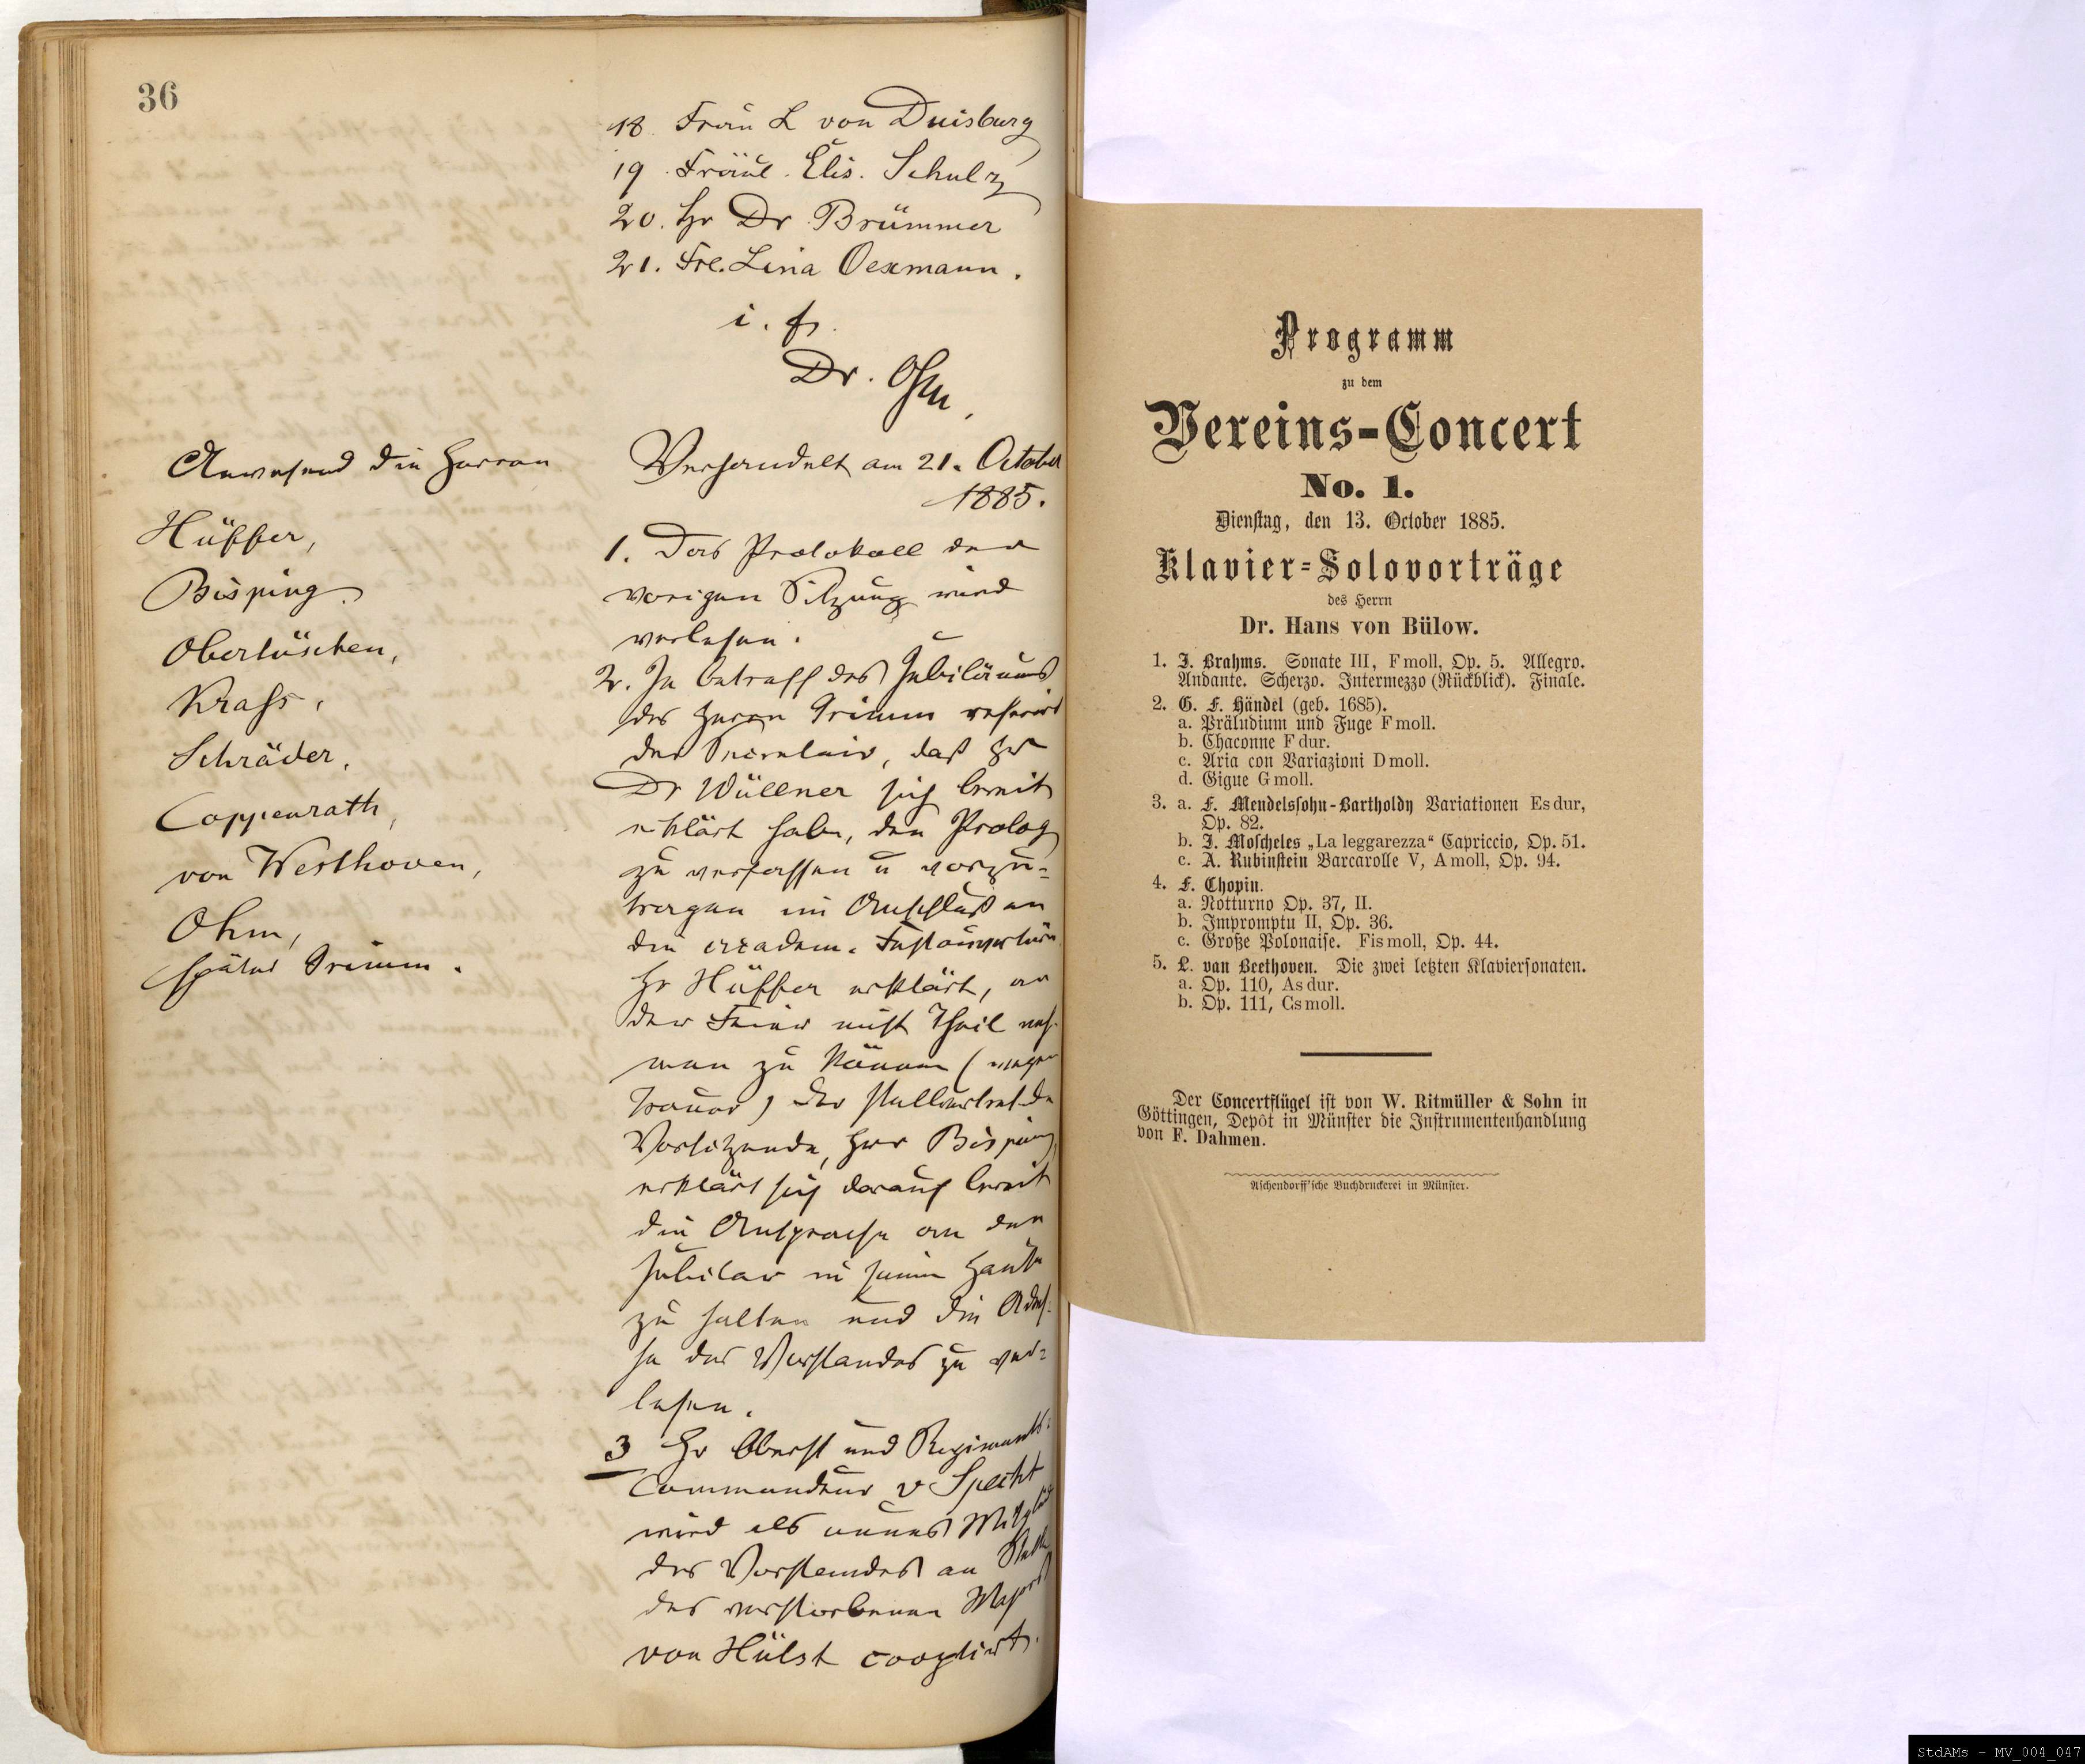 36
18. Fräu L von Duisburg
19. Fräul. Elis. Schulz
20. Hr Dr Brümmer
21. Frl. Lina Oexmann.
i. f.
Dr. Ohm,
Anwesend die Herren
Hüffer,
Bisping,
Obertüschen,
Krass,
Schräder,
Coppenrath,
von Westhoven,
Ohm,
später Grimm.
Verhandelt am 21. October
1885.
1. Das Protokoll der
vorigen Sitzung wird
verlesen.
2. In betreff des Jubiläums
des Herrn Grimm referirt
der Secretair, daß Hr
Dr Wüllner sich bereit
erklärt habe, den Prolog
zu verfassen u vorzu-
tragen im Anschluß an
die academ. Festouvertüre
Hr Hüffer erklärt, an
der Feier nicht Theil neh-
men zu können (wegen
Trauer) der stellvertretde
Vorsitzende, Herr Bisping,
erklärt sich darauf bereit
die Ansprache an den
Jubilar in seinem Hause
zu halten und die Adres-
se des Vorstandes zu ver-
lesen.
3 Hr Oberst und Regiments-
Commandeur v Specht
wird als neues Mitglied
des Vorstandes an Stelle
des verstorbenen Majors
von Hülst cooptirt.
Programm
zu dem
Vereins-Concert
No. 1.
Dienstag, den 13. October 1885.
Klavier-Solovorträge
des Herrn
Dr. Hans von Bülow.
1. J. Brahms. Sonate III, F moll, Op. 5. Allegro.
Andante. Scherzo. Intermezzo (Rückblick). Finale.
2. G. F. Händel (geb. 1685).
a. Präludium und Fuge F moll.
b. Chaconne F dur.
c. Aria con Variazioni D moll.
d. Gigue G moll.
3. a. F. Mendelssohn-Bartholdy Variationen Es dur,
Op. 82.
b. J. Moscheles „La leggarezza“ Capriccio, Op. 51.
c. A. Rubinstein Barcarolle V, A moll, Op. 94.
4. F. Chopin.
a. Notturno Op. 37, II.
b. Impromptu II, Op. 36.
c. Große Polonaise. Fis moll, Op. 44.
5. L. van Beethoven. Die zwei letzten Klaviersonaten.
a. Op. 110, As dur.
b. Op. 111, Cs moll.
Der Concertflügel ist von W. Ritmüller & Sohn in
Göttingen, Depôt in Münster die Instrumentenhandlung
von F. Dahmen.
Aschendorff'sche Buchdruckerei in Münster.
StdAMs - MV_004_047